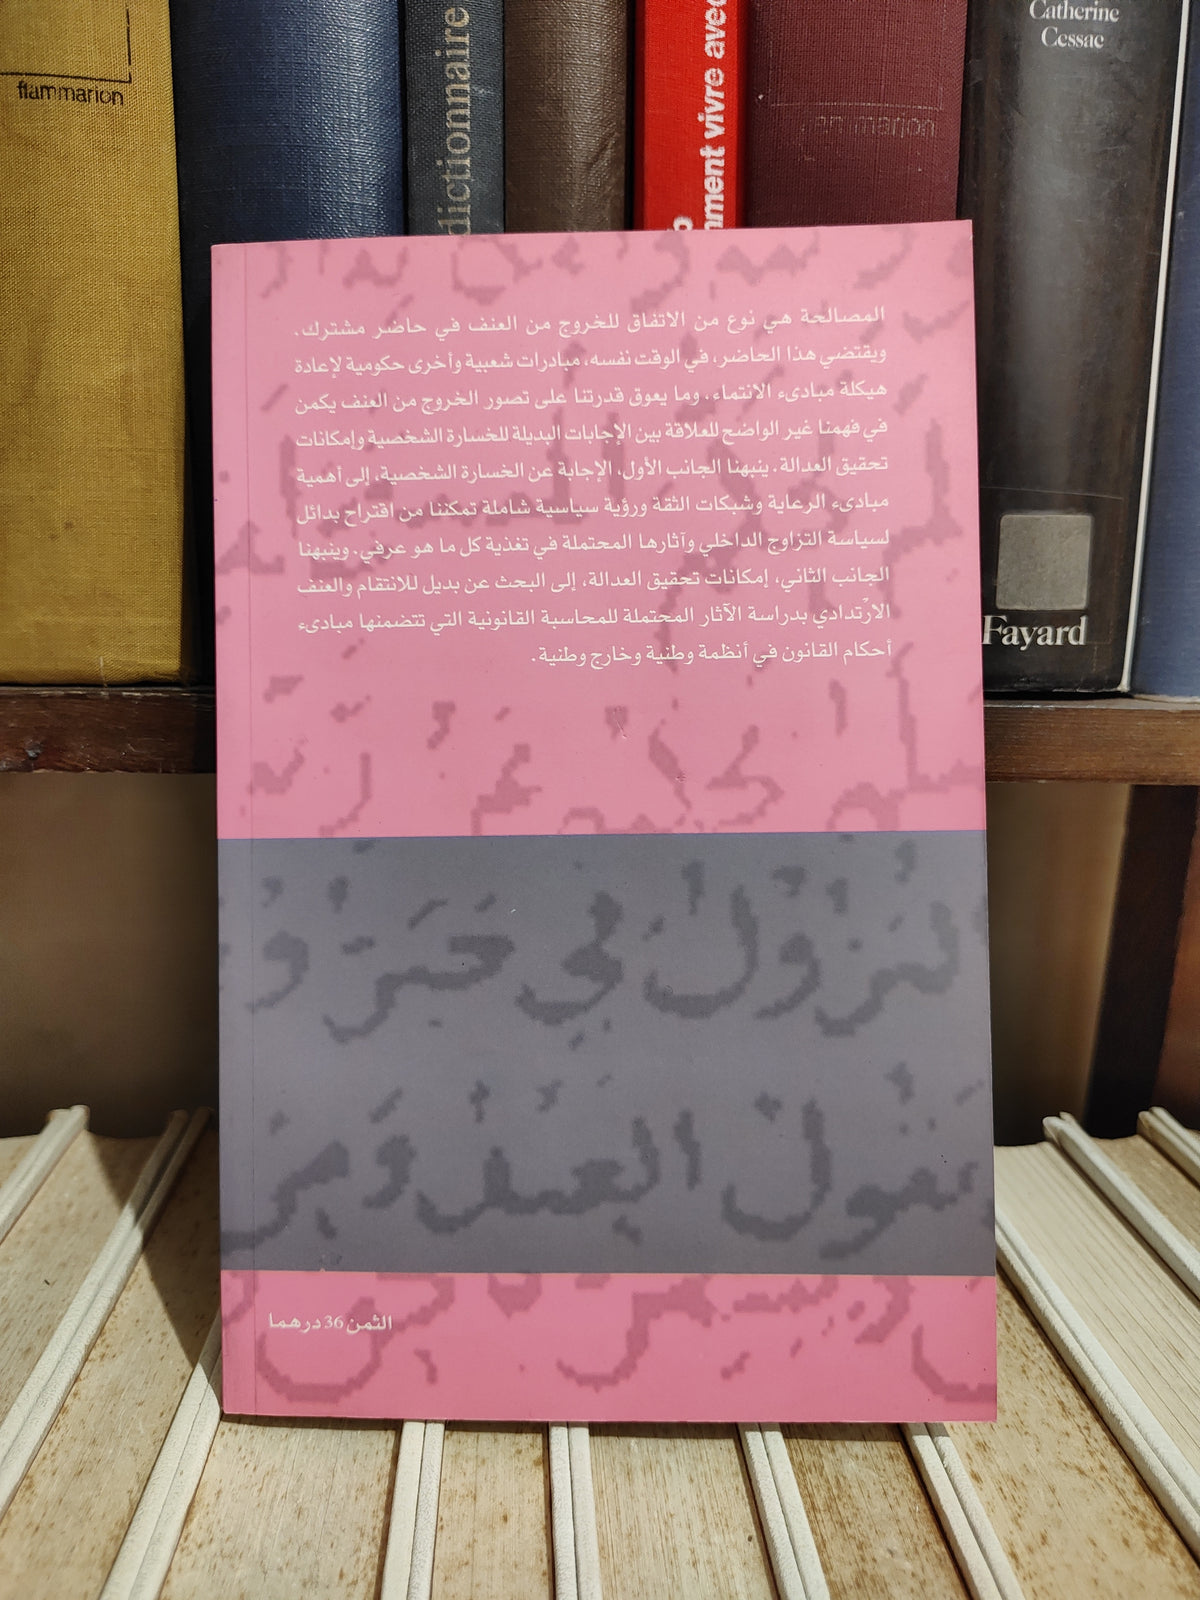 flammarion
dictionnaire
mment vivre avec
flammarion
Catherine
Cessac
Fayard
المصالحة هي نوع من الاتفاق للخروج من العنف في حاضر مشترك.
ويقتضي هذا الحاضر، في الوقت نفسه، مبادرات شعبية وأخرى حكومية لإعادة
هيكلة مبادىء الانتماء. وما يعوق قدرتنا على تصور الخروج من العنف يكمن
في فهمنا غير الواضح للعلاقة بين الإجابات البديلة للخسارة الشخصية وإمكانات
تحقيق العدالة. ينبهنا الجانب الأول، الإجابة عن الخسارة الشخصية، إلى أهمية
مبادىء الرعاية وشبكات الثقة ورؤية سياسية شاملة تمكننا من اقتراح بدائل
لسياسة التزاوج الداخلي وآثارها المحتملة في تغذية كل ما هو عرفي. وينبهنا
الجانب الثاني، إمكانات تحقيق العدالة، إلى البحث عن بديل للانتقام والعنف
الارْتدادي بدراسة الآثار المحتملة للمحاسبة القانونية التي تتضمنها مبادىء
أحكام القانون في أنظمة وطنية وخارج وطنية.
الثمن 36 درهما